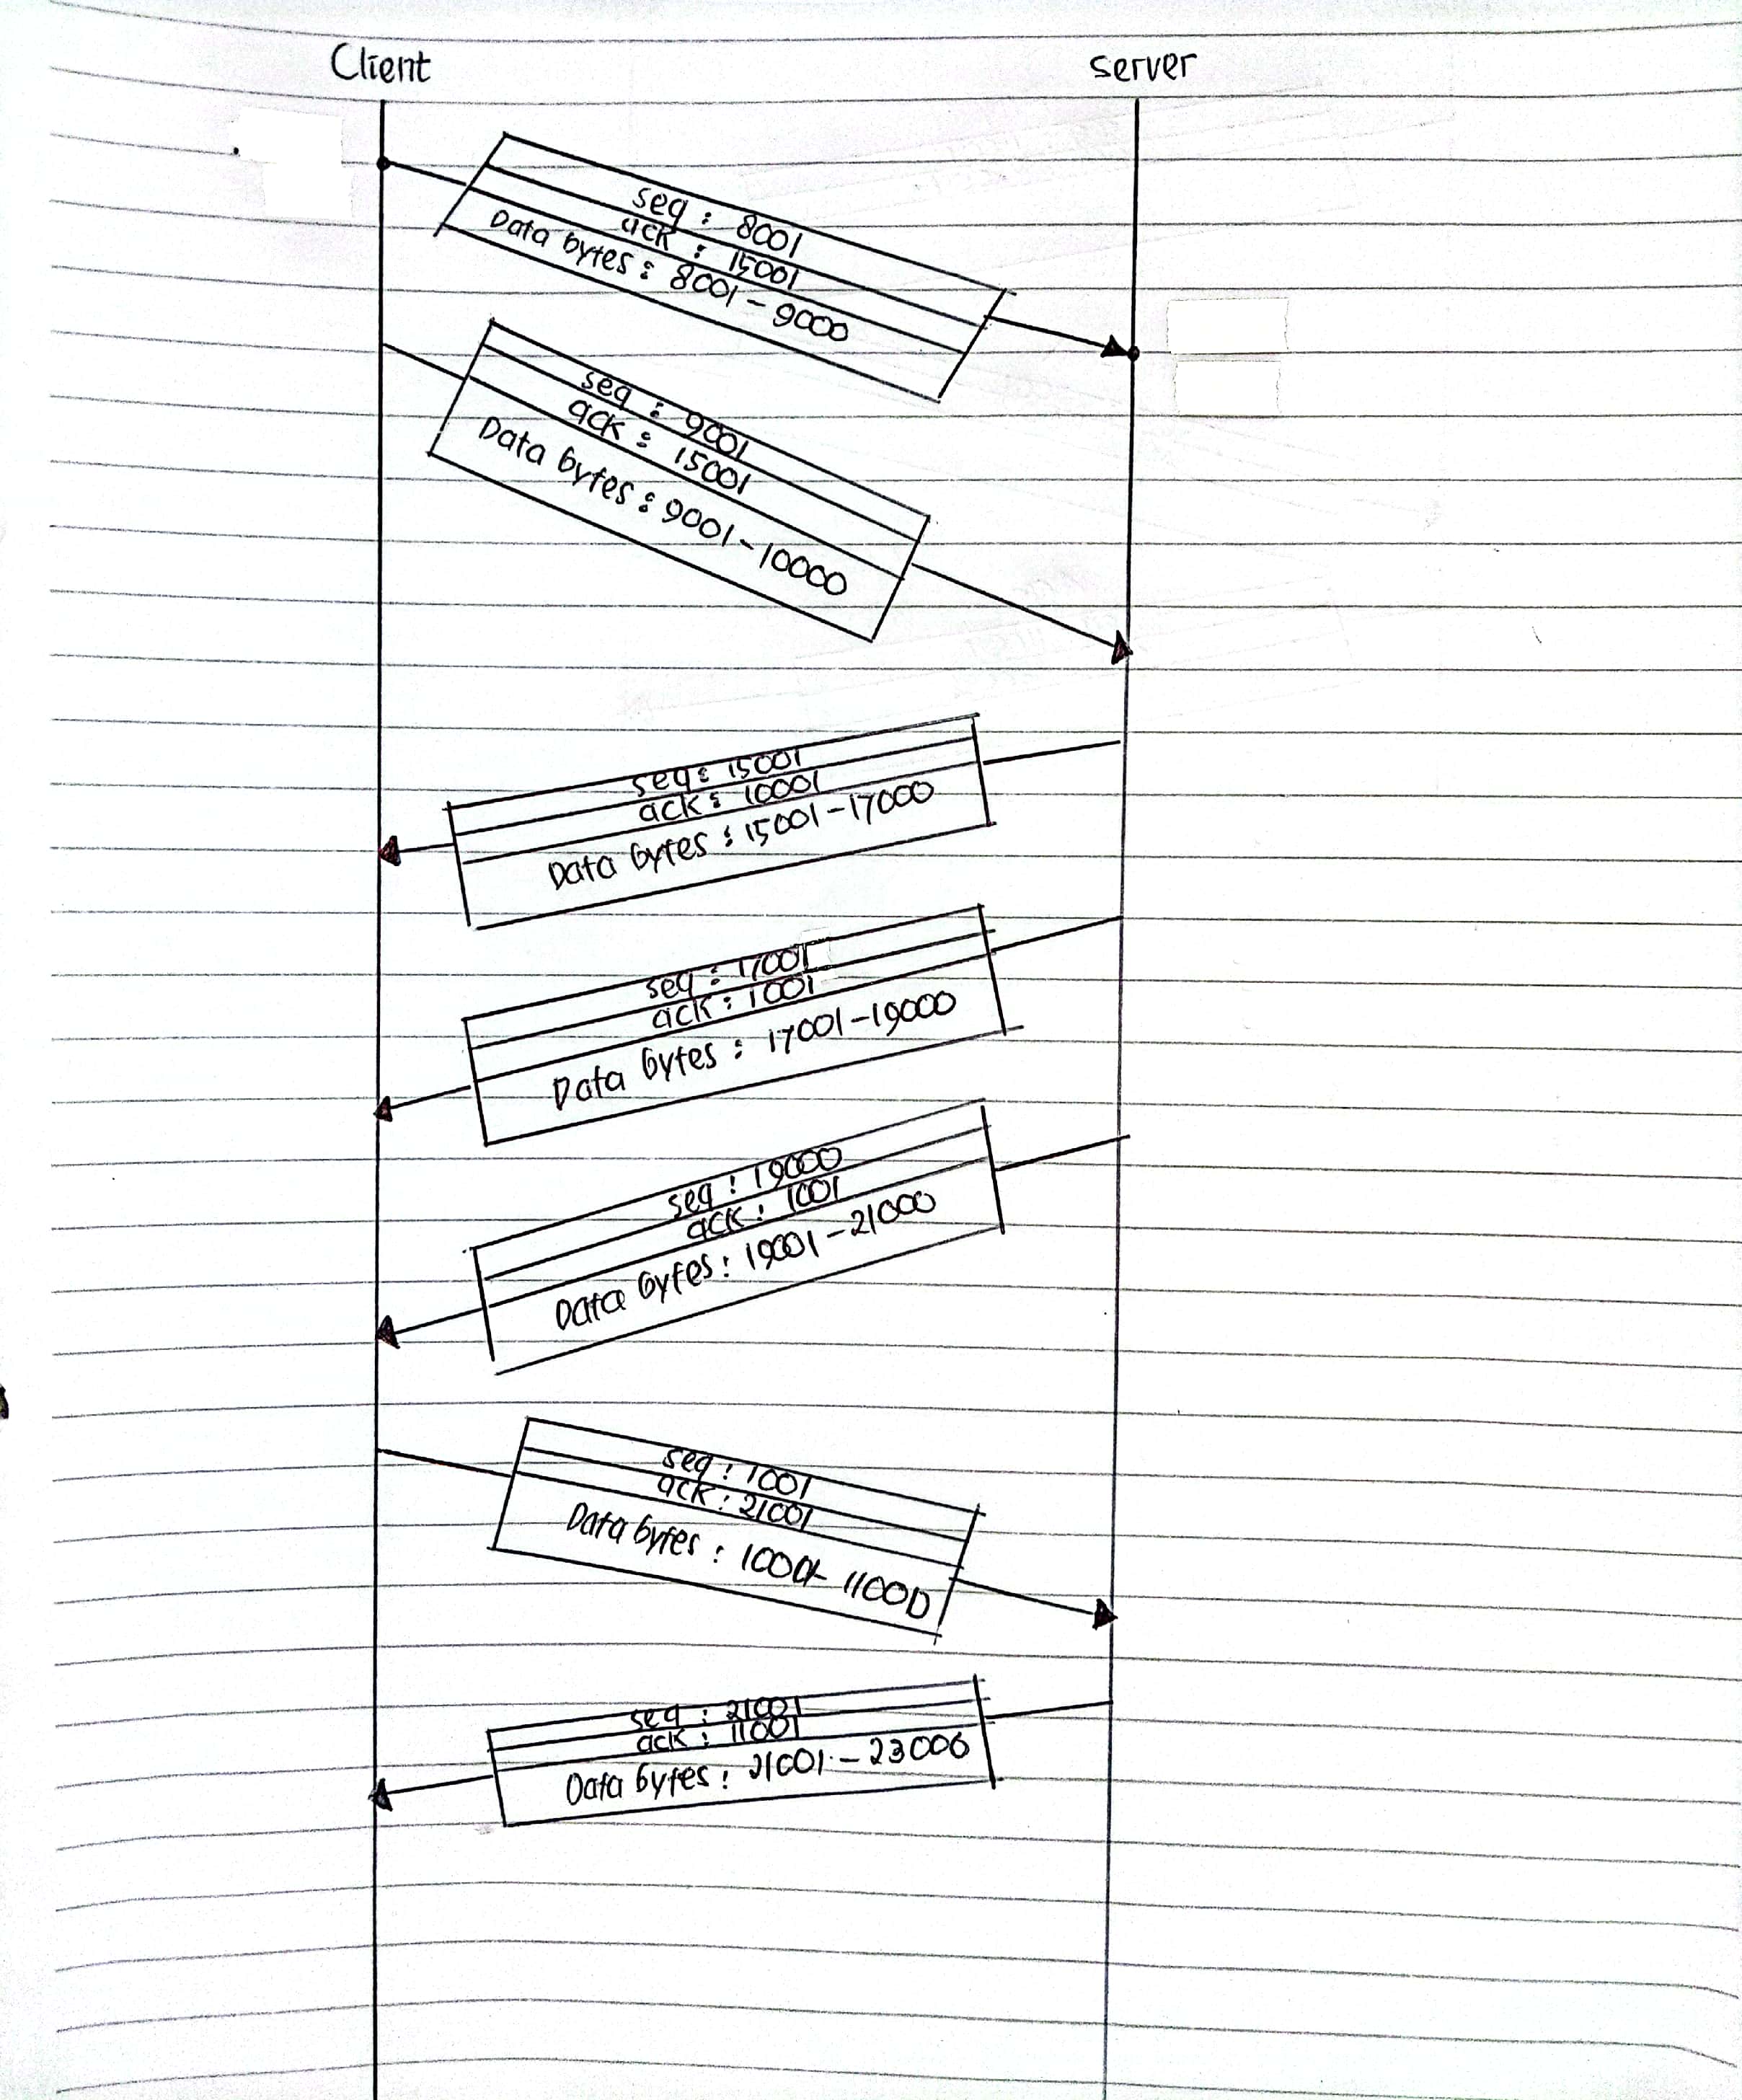 Client
server
seq : 8001
ack : 15001
Data bytes : 8001 - 9000
seq : 9001
ack : 15001
Data bytes : 9001 - 10000
seq : 15001
ack : 10001
Data bytes : 15001 - 17000
seq : 17001
ack : 1001
Data bytes : 17001 - 19000
seq : 19000
ack : 1001
Data bytes : 19001 - 21000
seq : 1001
ack : 21001
Data bytes : 10001- 11000
seq : 21001
ack : 11001
Data bytes : 21001 - 23006